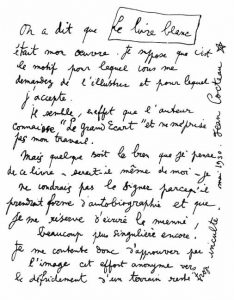 On a dit que Le livre blanc
était mon œuvre. Je suppose que c'est
le motif pour lequel vous me
demandez de l'illustrer et pour lequel
j'accepte.
Il semble, en effet que l'auteur
connaisse "Le Grand Ecart" et ne méprise
pas mon travail.
Mais quelque soit le bien que je pense
de ce livre – serait-il même de moi – je
ne voudrais pas le signer parce qu'il
prendrait forme d'autobiographie et que
je me réserve d'écrire la mienne,
beaucoup plus singulière encore.
Je me contente donc d'approuver par
l'image cet effort anonyme vers
le défrichement d'un terrain resté
inculte
Jean Cocteau
mai 1930.